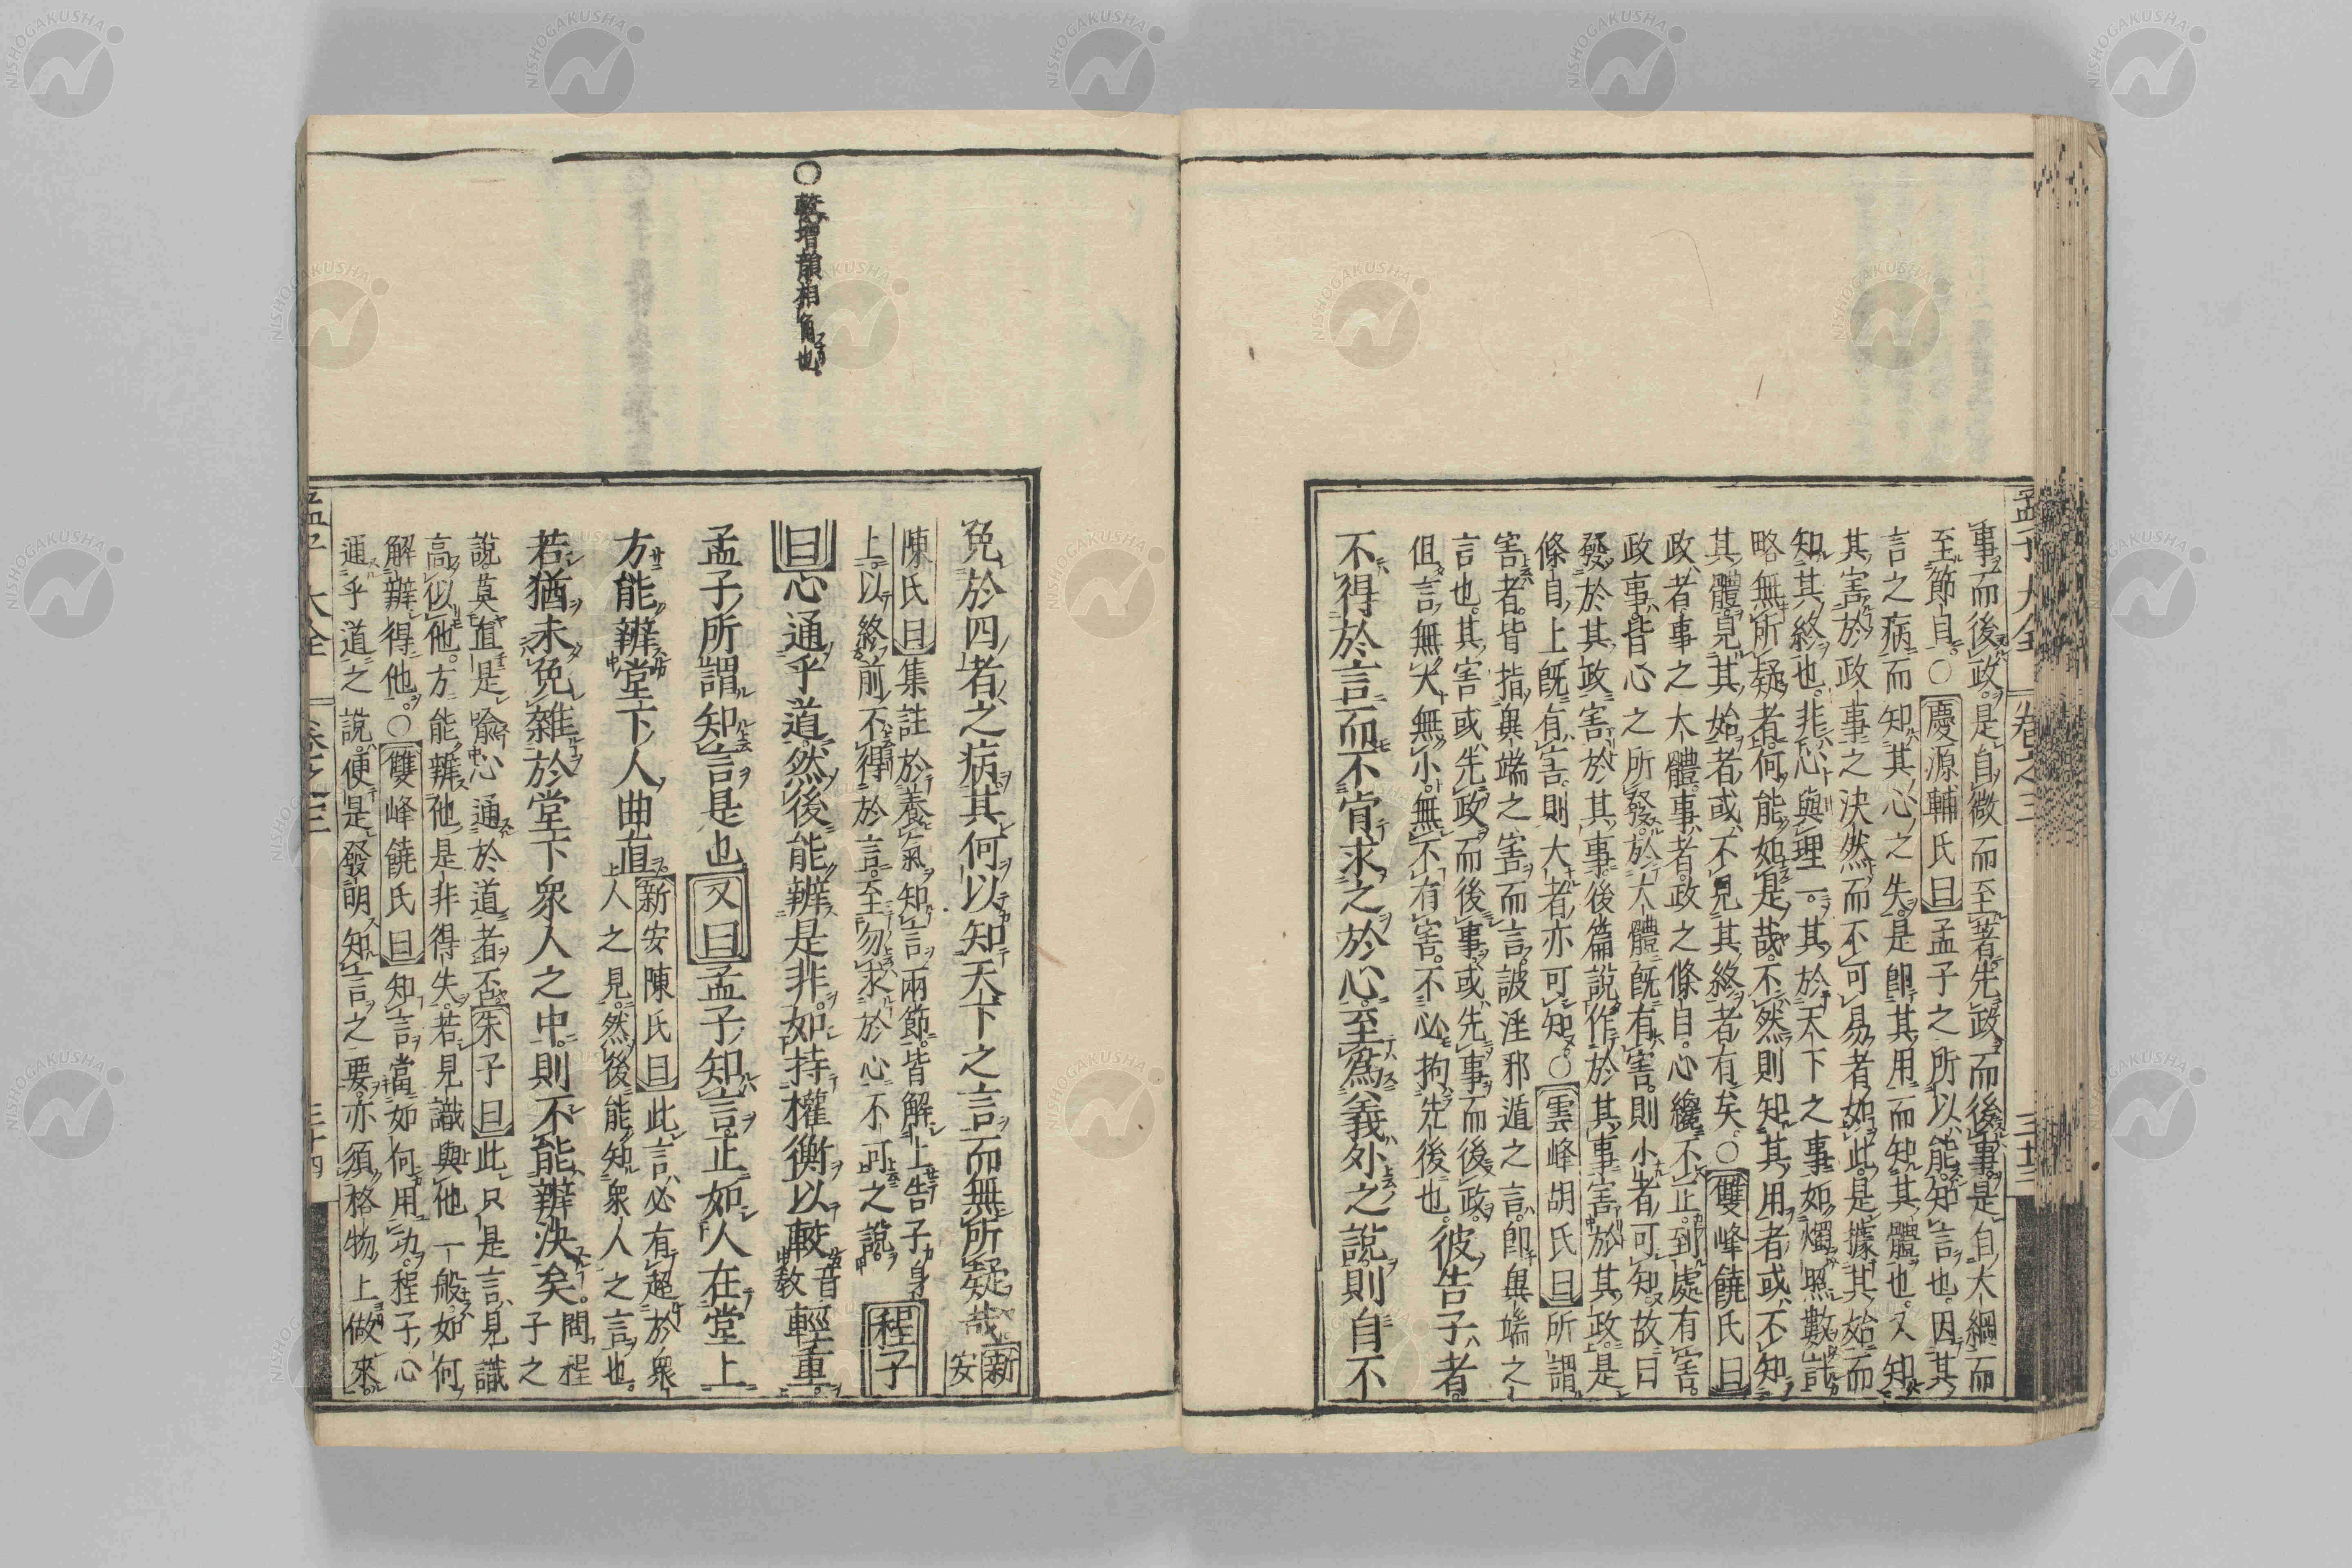 孟子大全 卷之三 三十三
事而後政是自微而至著先政而後事是自大綱而
至節自○慶源輔氏曰孟子之所以能知言也因其
言之病而知其心之失是卽其用而知其體也又知
其害於政事之決然而不可易者如此是據其始而
知其終也非心與理一其於天下之事如燭照數計
略無所疑者何能如是哉不然則知其用者或不知
其體見其始者或不見其終者有矣○雙峰饒氏曰
政者事之大體事者政之條自心纔不正到處有害
政事皆心之所發於大體旣有害則小者可知故曰
發於其政害於其事後篇說作於其事害於其政是
條自上旣有害則大者亦可知○雲峰胡氏曰所謂
害者皆指異端之害而言詖淫邪遁之言卽異端之
言也其害或先政而後事或先事而後政
但言無大無小無不有害不必拘先後也彼告子者
不得於言而不肯求之於心至爲義外之說則自不
○較增韻相角也
免於四者之病其何以知天下之言而無所疑哉新安
陳氏曰集註於養氣知言兩節皆解上告子身
上以終前不得於言至勿求於心不可之說程子
曰心通乎道然後能辨是非如持權衡以較音教輕重
孟子所謂知言是也又曰孟子知言正如人在堂上
方能辨堂下人曲直新安陳氏曰此言必有超於衆
人之見然後能知衆人之言也
若猶未免雜於堂下衆人之中則不能辨決矣問程子之
說莫直是喩心通於道者否朱子曰此只是言見識
高似他方能辨他是非得失若見識與他一般如何
解辨得他○雙峰饒氏曰知言當如何用功程子心
通乎道之說便是發明知言之要亦須格物上做來
孟子大全 卷之三 三十四